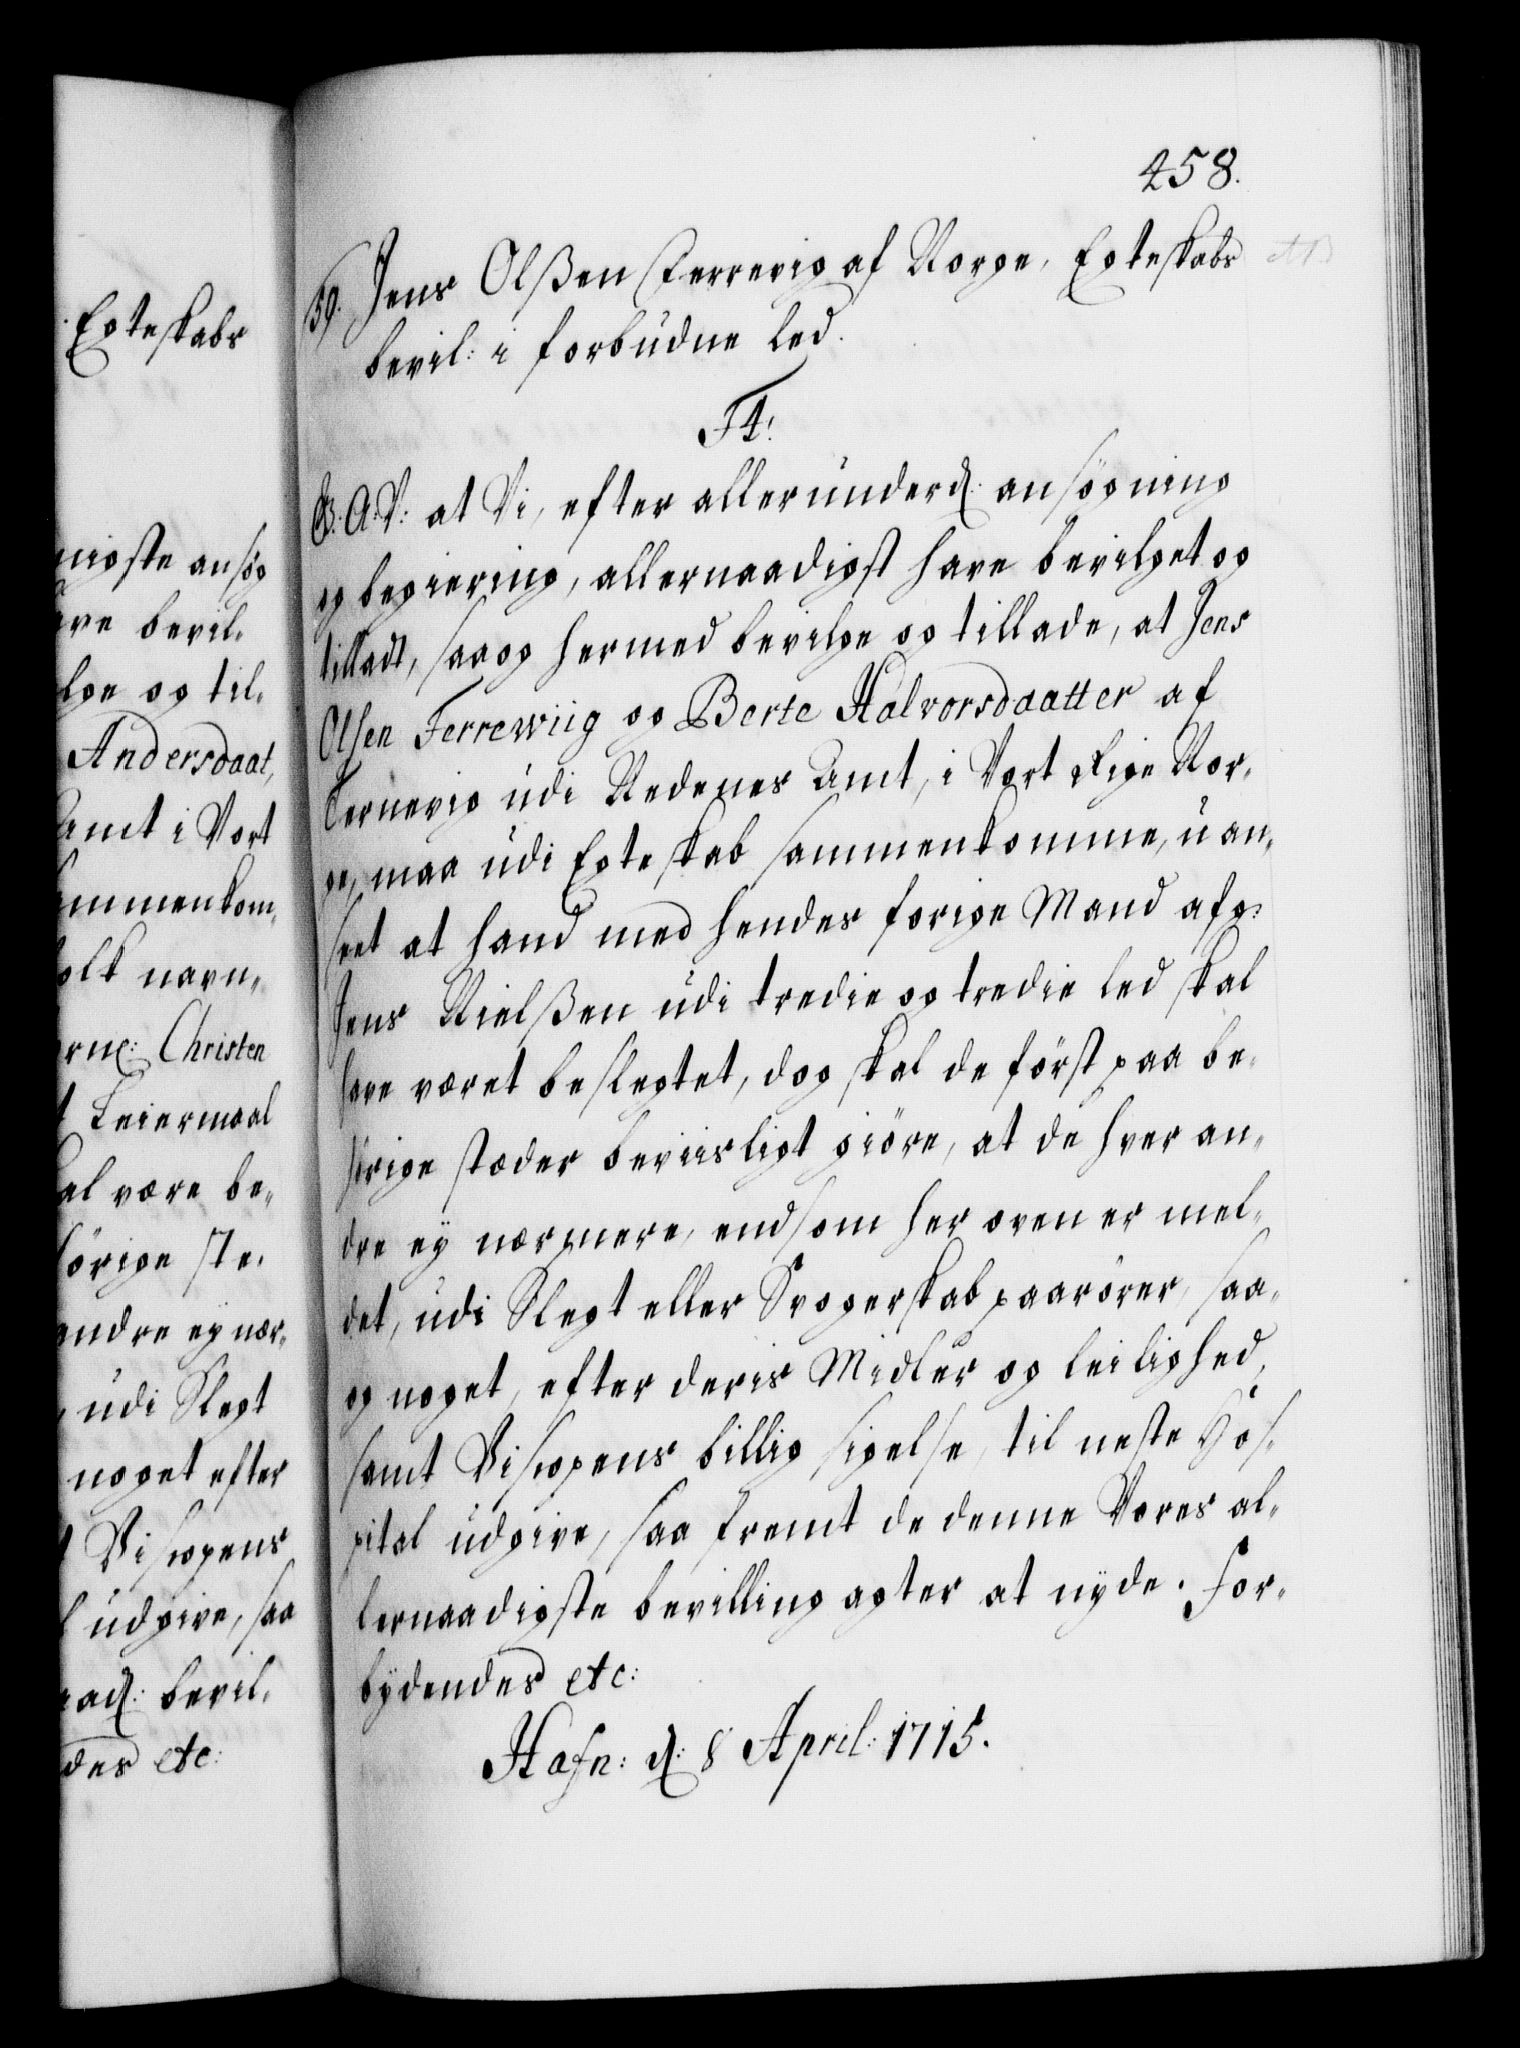 458.
59. Jens Olßen Ferrevig af Norge, Egteskabs
bevil: i forbudne led.
F4!
G. A: V: at Vi, efter allerunderd: ansøgning
og begiering, allernaadigst have bevilget og
tilladt, saa og hermed bevilge og tillade, at Jens
Olsen Ferrewiig og Berte Halvorsdaatter af
Ternevig udi Nedenes Amt, i Vort Rige Nor-
ge, maa udi Egteskab sammenkomme, uan-
seet at hand med hendes forige Mand afg:
Jens Nielßen udi tredie og tredie led skal
have været beslegtet, dog skal de först paa be-
hörige stæder beviisligt giöre, at de hver an-
dre ey nærmere, end som her oven er mel-
det, udi Slegt eller Svogerskab paarörer, saa-
og noget, efter deris Midler og leilighed,
samt Biscopens billig sigelse, til neste Hos-
pital udgive, saa fremt de denne Vores al-
lernaadigste bevilling agter at nyde. For-
bydendes etc:
Hafn: d: 8 April: 1715.
Egteskabs
nigste ansøg
ave bevil-
lge og til-
Andersdaat,
Amt i Vort
ammenkom-
folk navn-
orne: Christen
t Leiermaal
kal være be-
hörige ste-
andre ey nær-
, udi Slegt
noget efter
t Biscopens
l udgive, saa
naad: bevil-
des etc: